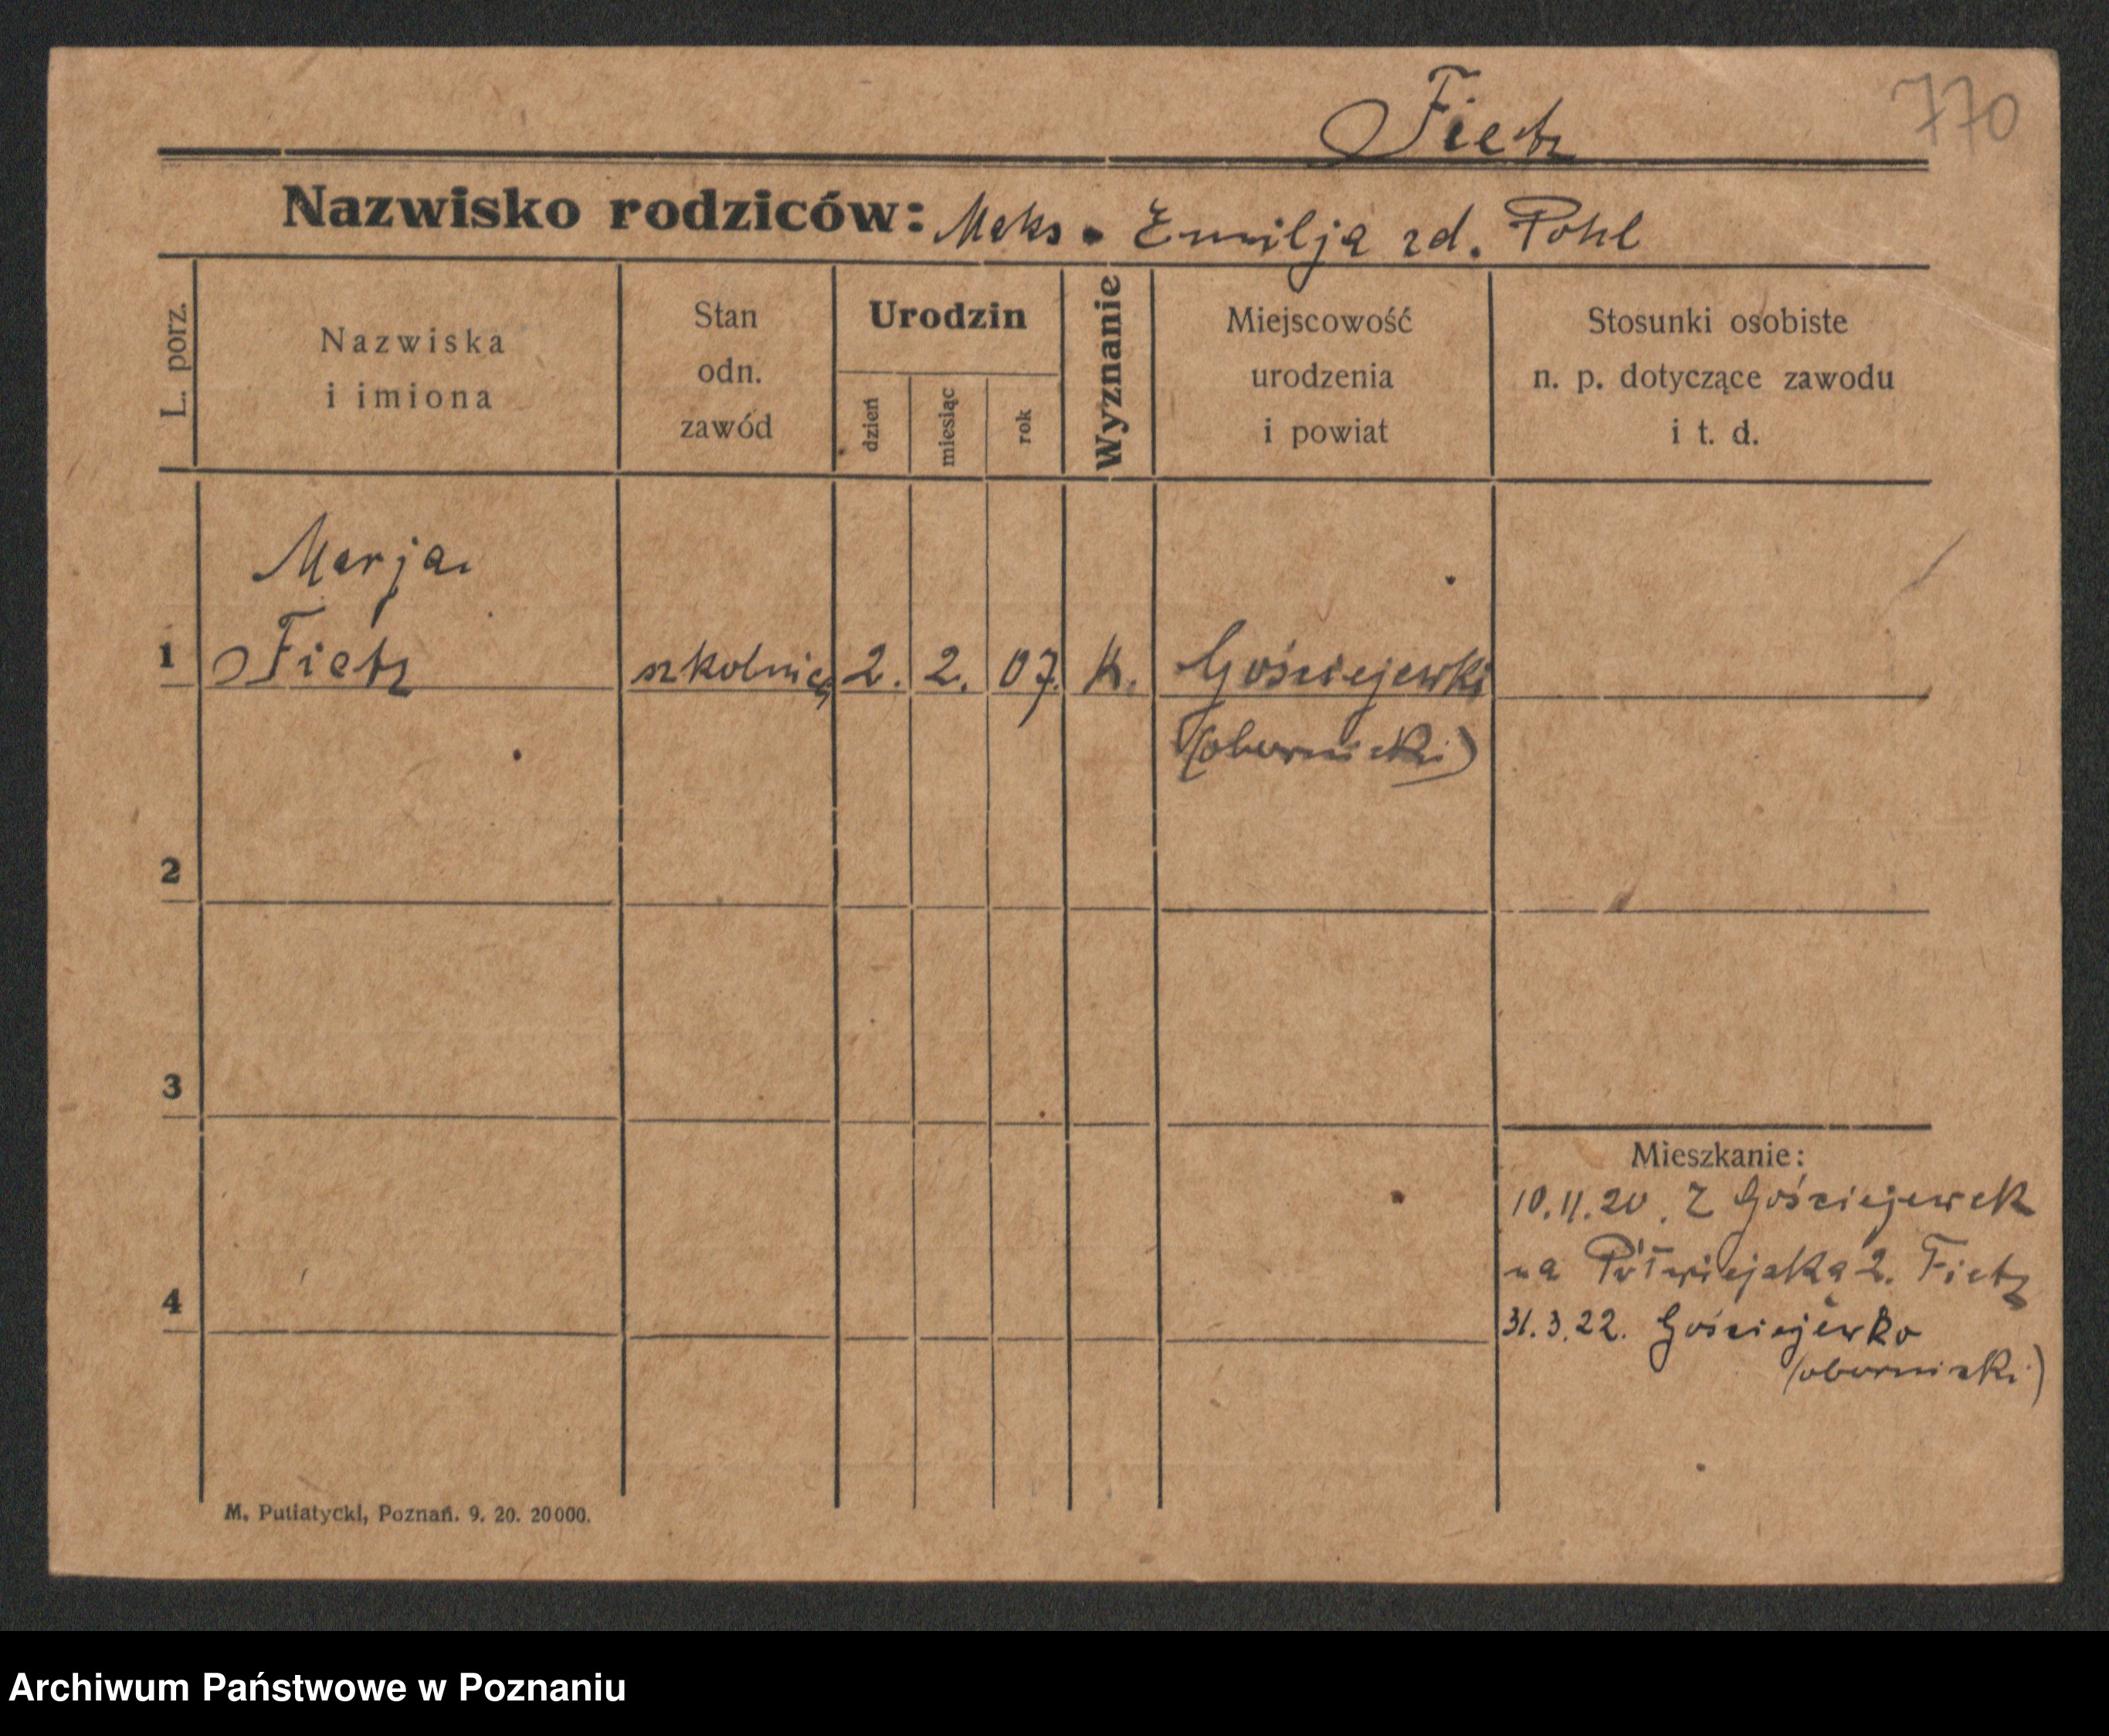 770
Fietz
Nazwisko rodziców: Maks. Emilja zd. Pohl
L. porz.
Nazwiska
i imiona
Stan
odn.
zawód
Urodzin
dzień
miesiąc
rok
Wyznanie
Miejscowość
urodzenia
i powiat
Stosunki osobiste
n. p. dotyczące zawodu
i t. d.
Marja
1 Fietz 2. 2. 07. K. Gościejewki
(obornicki)
2
3
4
Mieszkanie:
10.11.20. Z Gościejewek
na Półwiejską 2. Fietz
31.3.22. Gościejewko
(obornicki)
M. Putiatycki, Poznań. 9. 20. 20000.
Archiwum Państwowe w Poznaniu